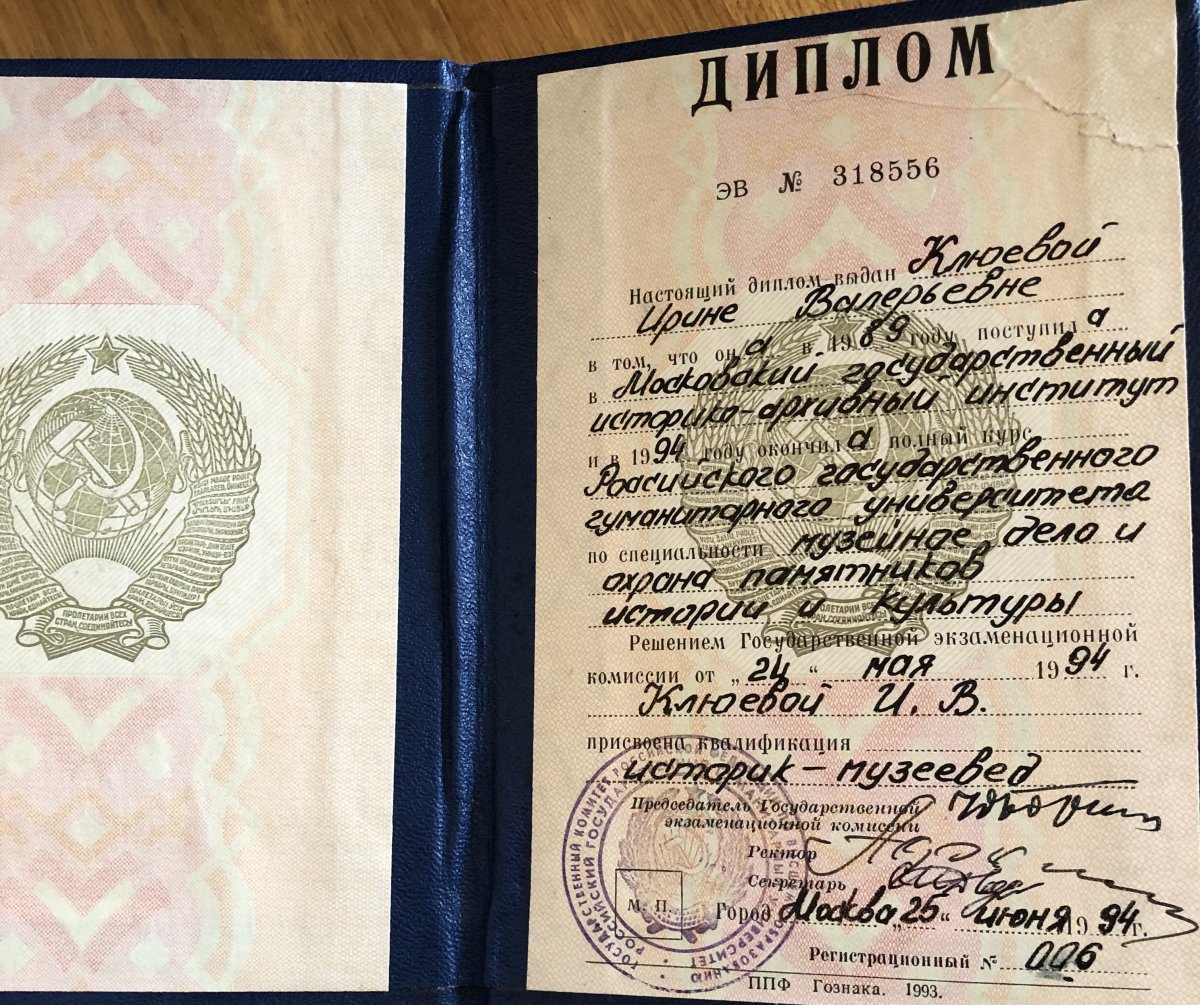 ПРОЛЕТАРИИ ВСЕХ
СТРАН, СОЕДИНЯЙТЕСЬ!
ДИПЛОМ
ЭВ № 318556
Настоящий диплом выдан Клюевой
Ирине Валерьевне
в том, что она в 1989 году поступила
в Московский государственный
историко-архивный институт
и в 1994 году окончила полный курс
Российского государственного
гуманитарного университета
по специальности музейное дело и
охрана памятников
истории и культуры
Решением Государственной экзаменационной
комиссии от „24“ мая 1994 г.
Клюевой И. В.
присвоена квалификация
историк-музеевед
Председатель Государственной
экзаменационной комиссии
Ректор
Секретарь
М. П.
Город Москва „25“ июня 1994 г.
Регистрационный № 006
ППФ Гознака. 1993.